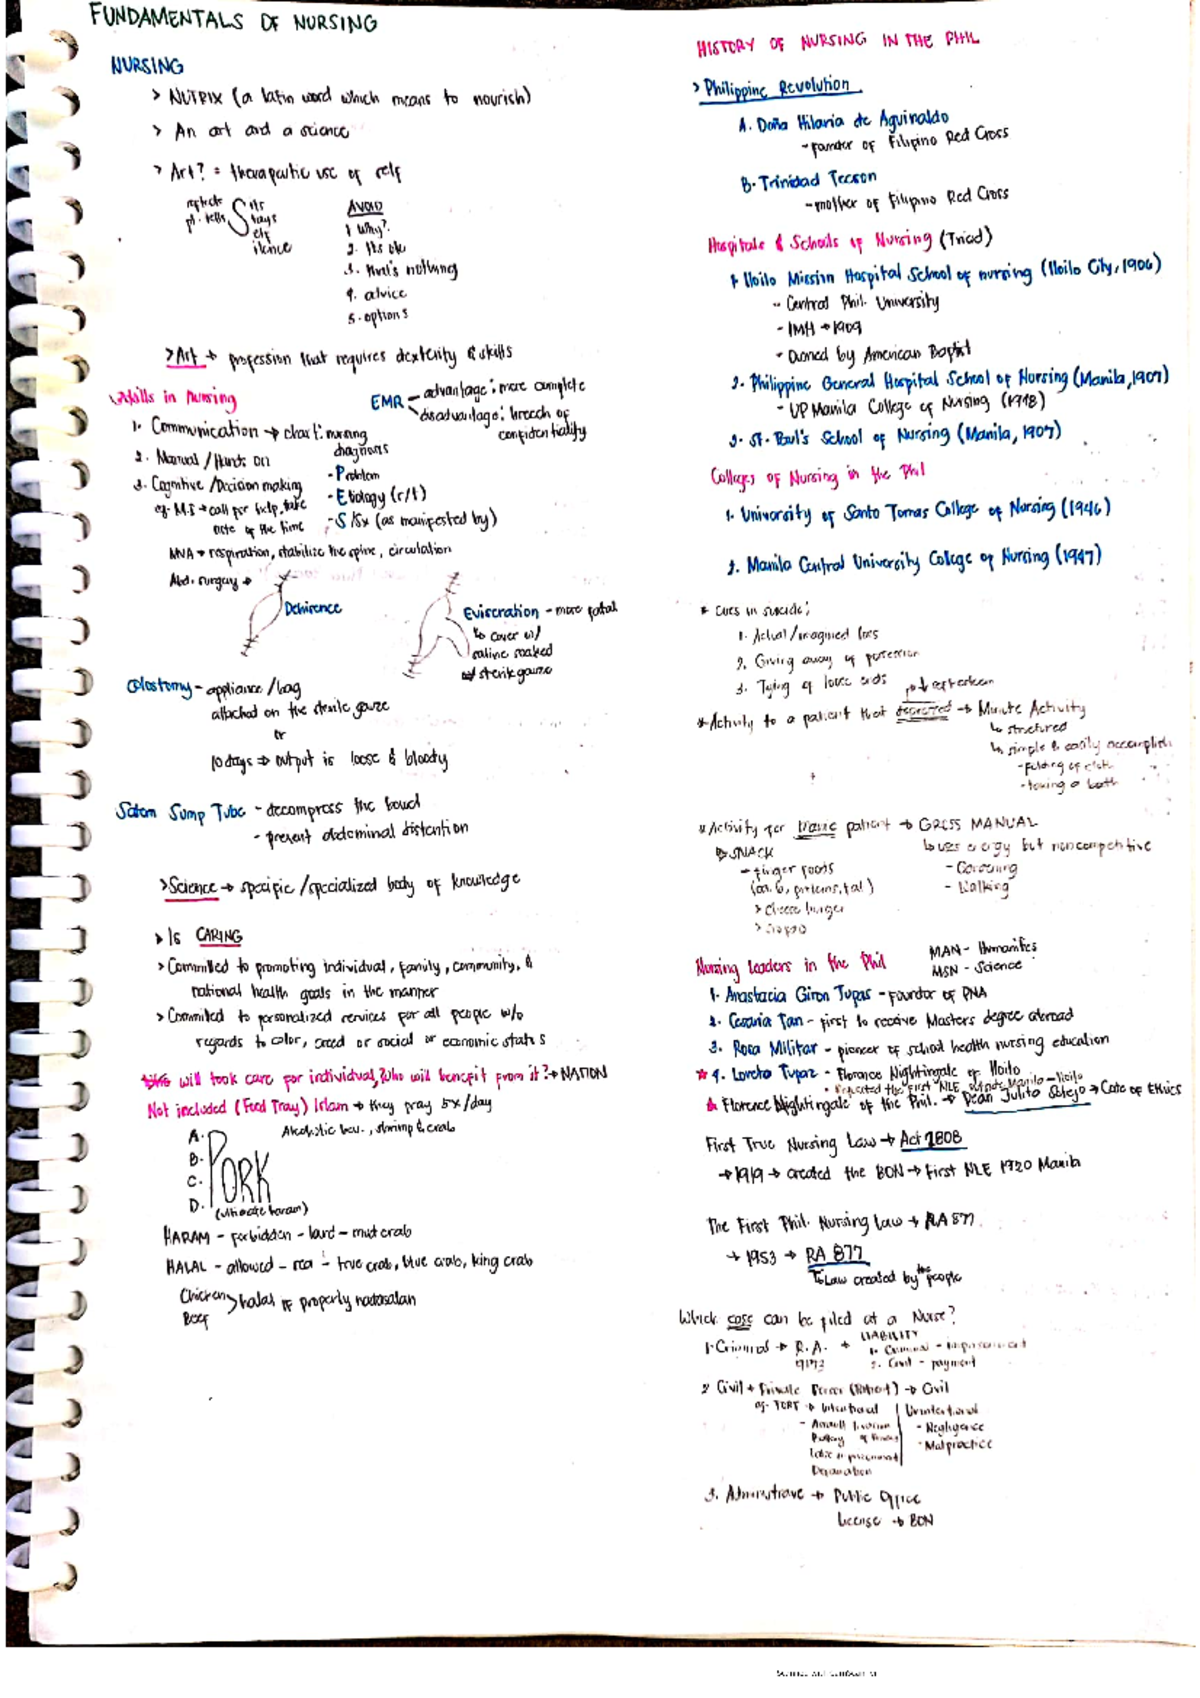 FUNDAMENTALS OF NURSING
NURSING
> NUTRIX (a latin word which means to nourish)
> An art and a science
> Art? = therapeutic use of self
its
stays
self
silence
AVOID
1. Why?
2. Its ok
3. that's nothing
4. advice
5. options
> Art → profession that requires dexterity & skills
Skills in Nursing
EMR
advantage: more complete
disadvantage: breech of
confidentiality
1. Communication → chart: nursing
diagnosis
- Problem
- Etiology (r/t)
- S/Sx (as manifested by)
2. Manual / Hands on
3. Cognitive / Decision making
eg. M.I → call for help, take
note of the time
MVA → respiration, stabilize the spine, circulation
Abd. surgery →
Dehisence
Evisceration - more fatal
↳ cover w/
saline soaked
sterile gauze
Colostomy - appliance / bag
attached on the sterile gauze
or
10 days → output is loose & bloody
Salem Sump Tube - decompress the bowel
- prevent abdominal distention
> Science → specific / specialized body of knowledge
> Is CARING
> Committed to promoting individual, family, community, &
national health goals in the manner
> Committed to personalized services for all people w/o
regards to color, creed or social or economic status
will took care for individual, Who will benefit from it? → NATION
Not included (Food Tray) Islam → they pray 5x/day
Alcoholic bev., shrimp & crab
A.
B.
C.
D.
PORK
(ultimate haram)
HARAM - forbidden - land - mud crab
HALAL - allowed - sea - true crab, blue crab, king crab
Chicken
Beef
> halal if properly nadasalan
HISTORY OF NURSING IN THE PHIL
> Philippine Revolution
A. Doña Hilaria de Aguinaldo
- founder of Filipino Red Cross
B. Trinidad Tecson
- mother of Filipino Red Cross
Hospitals & Schools of Nursing (Triad)
1. Iloilo Mission Hospital School of nursing (Iloilo City, 1906)
- Central Phil. University
- IMH → 1909
- Owned by American Baptist
2. Philippine General Hospital School of Nursing (Manila, 1907)
- UP Manila College of Nursing (1948)
3. St. Paul's School of Nursing (Manila, 1907)
Colleges of Nursing in the Phil
1. University of Santo Tomas College of Nursing (1946)
2. Manila Central University College of Nursing (1947)
* Cues in suicide:
1. Actual / imagined loss
2. Giving away of possession
3. Tying of loose ends
* Activity to a patient that depressed → Minute Activity
↳ structured
↳ simple & easily accomplish
- folding of cloth
* Activity for manic patient → GROSS MANUAL
↳ uses energy but noncompetitive
- Gardening
- Walking
SNACK
- finger foods
> Cheese burger
Nursing Leaders in the Phil
MAN - Humanities
MSN - Science
1. Anastacia Giron Tupas - founder of PNA
2. Cesaria Tan - first to receive Masters degree abroad
3. Rosa Militar - pioneer of school health nursing education
★ 4. Loreto Tupaz - Florence Nightingale of Iloilo
★ Florence Nightingale of the Phil. → Dean Julita Sotejo → Code of Ethics
First True Nursing Law → Act 2808
→ 1919 → created the BON → First NLE 1920 Manila
The First Phil. Nursing Law → RA 877
→ 1953 → RA 877
↳ Law created by the people
Which case can be filed at a Nurse?
LIABILITY
1. Criminal → R.A. →
9173
1. Criminal - imprisonment
2. Civil - payment
2. Civil → Private Person (Patient) → Civil
eg. TORT → Intentional
Unintentional
- Negligence
- Malpractice
- Assault
Defamation
3. Administrative → Public Office
License → BON